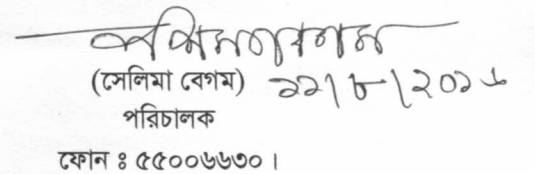 (সেলিমা বেগম) ২২|৮|২০১৬
পরিচালক
ফোন ঃ ৫৫০০৬৬৩০ ।